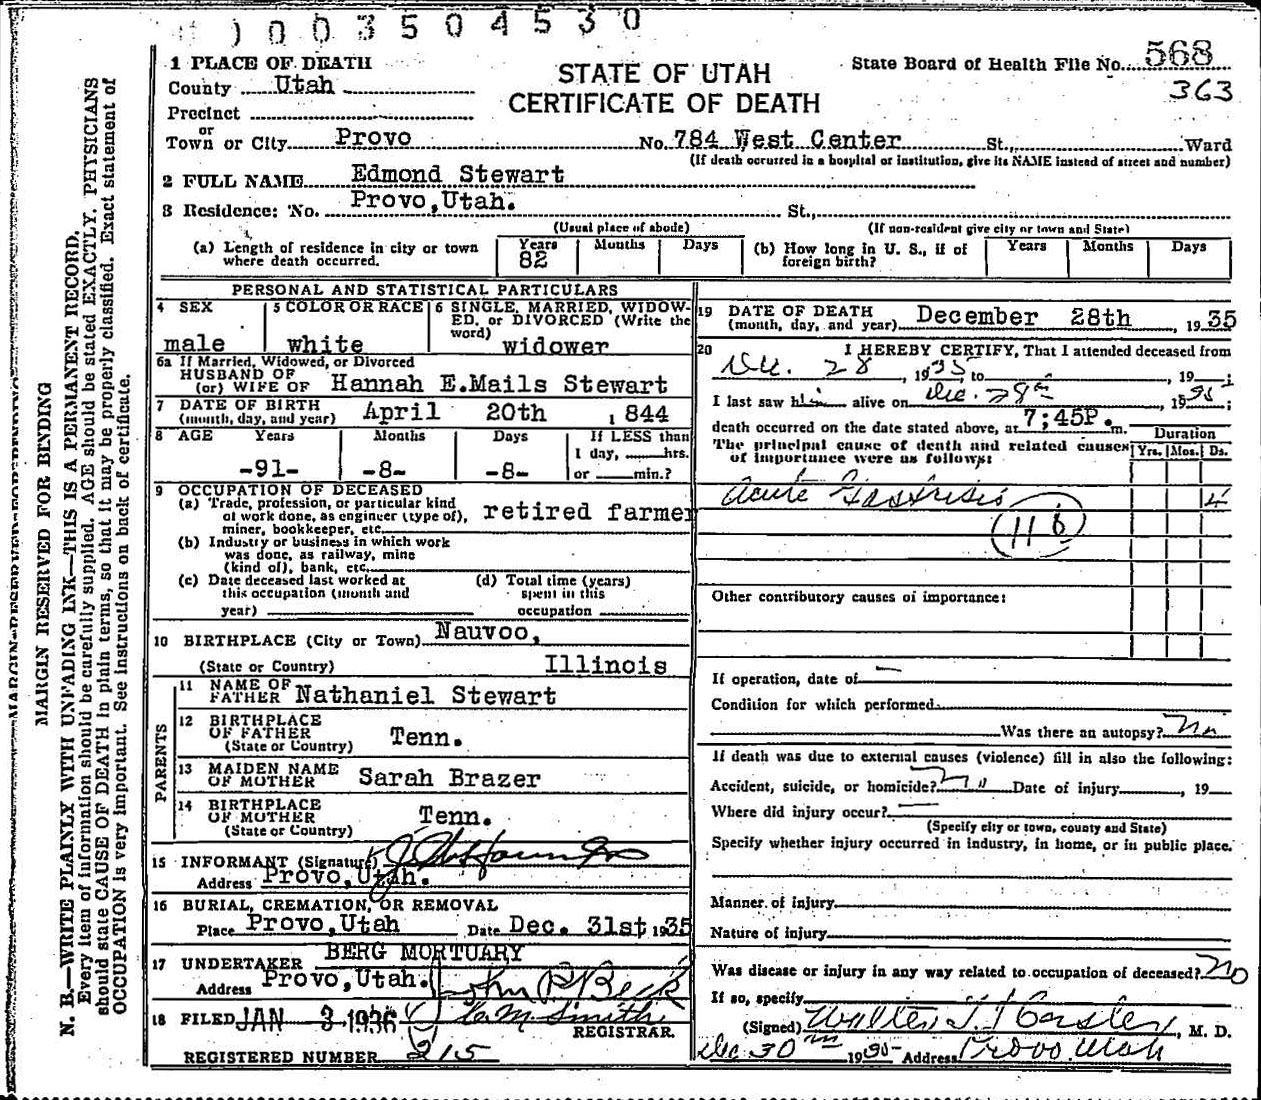 1003504530
1 PLACE OF DEATH
County Utah
Precinct
or
Town or City Provo No. 784 West Center St., Ward
STATE OF UTAH
CERTIFICATE OF DEATH
State Board of Health File No. 568
363
(If death occurred in a hospital or institution, give its NAME instead of street and number)
2 FULL NAME Edmond Stewart
3 Residence: No. Provo, Utah. St.,
(Usual place of abode) (If non-resident give city or town and State)
(a) Length of residence in city or town where death occurred. Years 82 Months Days
(b) How long in U. S., if of foreign birth? Years Months Days
PERSONAL AND STATISTICAL PARTICULARS
4 SEX male
5 COLOR OR RACE white
6 SINGLE, MARRIED, WIDOWED, or DIVORCED (Write the word) widower
6a If Married, Widowed, or Divorced
HUSBAND OF
(or) WIFE OF Hannah E.Mails Stewart
7 DATE OF BIRTH
(month, day, and year) April 20th 1844
8 AGE Years Months Days If LESS than
1 day, hrs.
or min.?
-91- -8- -8-
9 OCCUPATION OF DECEASED
(a) Trade, profession, or particular kind
of work done, as engineer (type of),
miner, bookkeeper, etc. retired farmer
(b) Industry or business in which work
was done, as railway, mine
(kind of), bank, etc.
(c) Date deceased last worked at
this occupation (month and
year)
(d) Total time (years)
spent in this
occupation
10 BIRTHPLACE (City or Town) Nauvoo,
(State or Country) Illinois
PARENTS
11 NAME OF
FATHER Nathaniel Stewart
12 BIRTHPLACE
OF FATHER
(State or Country) Tenn.
13 MAIDEN NAME
OF MOTHER Sarah Brazer
14 BIRTHPLACE
OF MOTHER
(State or Country) Tenn.
15 INFORMANT (Signature)
Address Provo, Utah.
16 BURIAL, CREMATION, OR REMOVAL
Place Provo, Utah Date Dec. 31st 1935
17 UNDERTAKER BERG MORTUARY
Address Provo, Utah. John R Beck
18 FILED JAN 3 1936 C.M. Smith
REGISTRAR.
REGISTERED NUMBER 215
19 DATE OF DEATH
(month, day, and year) December 28th, 1935
20 I HEREBY CERTIFY, That I attended deceased from
Dec. 28, 1935, to , 19 ;
I last saw him alive on Dec. 28th, 1935;
death occurred on the date stated above, at 7;45P. m.
The principal cause of death and related causes
of importance were as follows:
Duration
Yrs. Mos. Ds.
Acute Gastritis 4
Other contributory causes of importance:
If operation, date of —
Condition for which performed
Was there an autopsy? No
If death was due to external causes (violence) fill in also the following:
Accident, suicide, or homicide? No Date of injury , 19
Where did injury occur? —
(Specify city or town, county and State)
Specify whether injury occurred in industry, in home, or in public place.
Manner of injury
Nature of injury
Was disease or injury in any way related to occupation of deceased? No
If so, specify
(Signed) Walter T. Hasler, M. D.
Dec. 30th 1935 Address Provo Utah
MARGIN RESERVED FOR BINDING
N. B.—WRITE PLAINLY WITH UNFADING INK—THIS IS A PERMANENT RECORD.
Every item of information should be carefully supplied. AGE should be stated EXACTLY. PHYSICIANS
should state CAUSE OF DEATH in plain terms, so that it may be properly classified. Exact statement of
OCCUPATION is very important. See instructions on back of certificate.